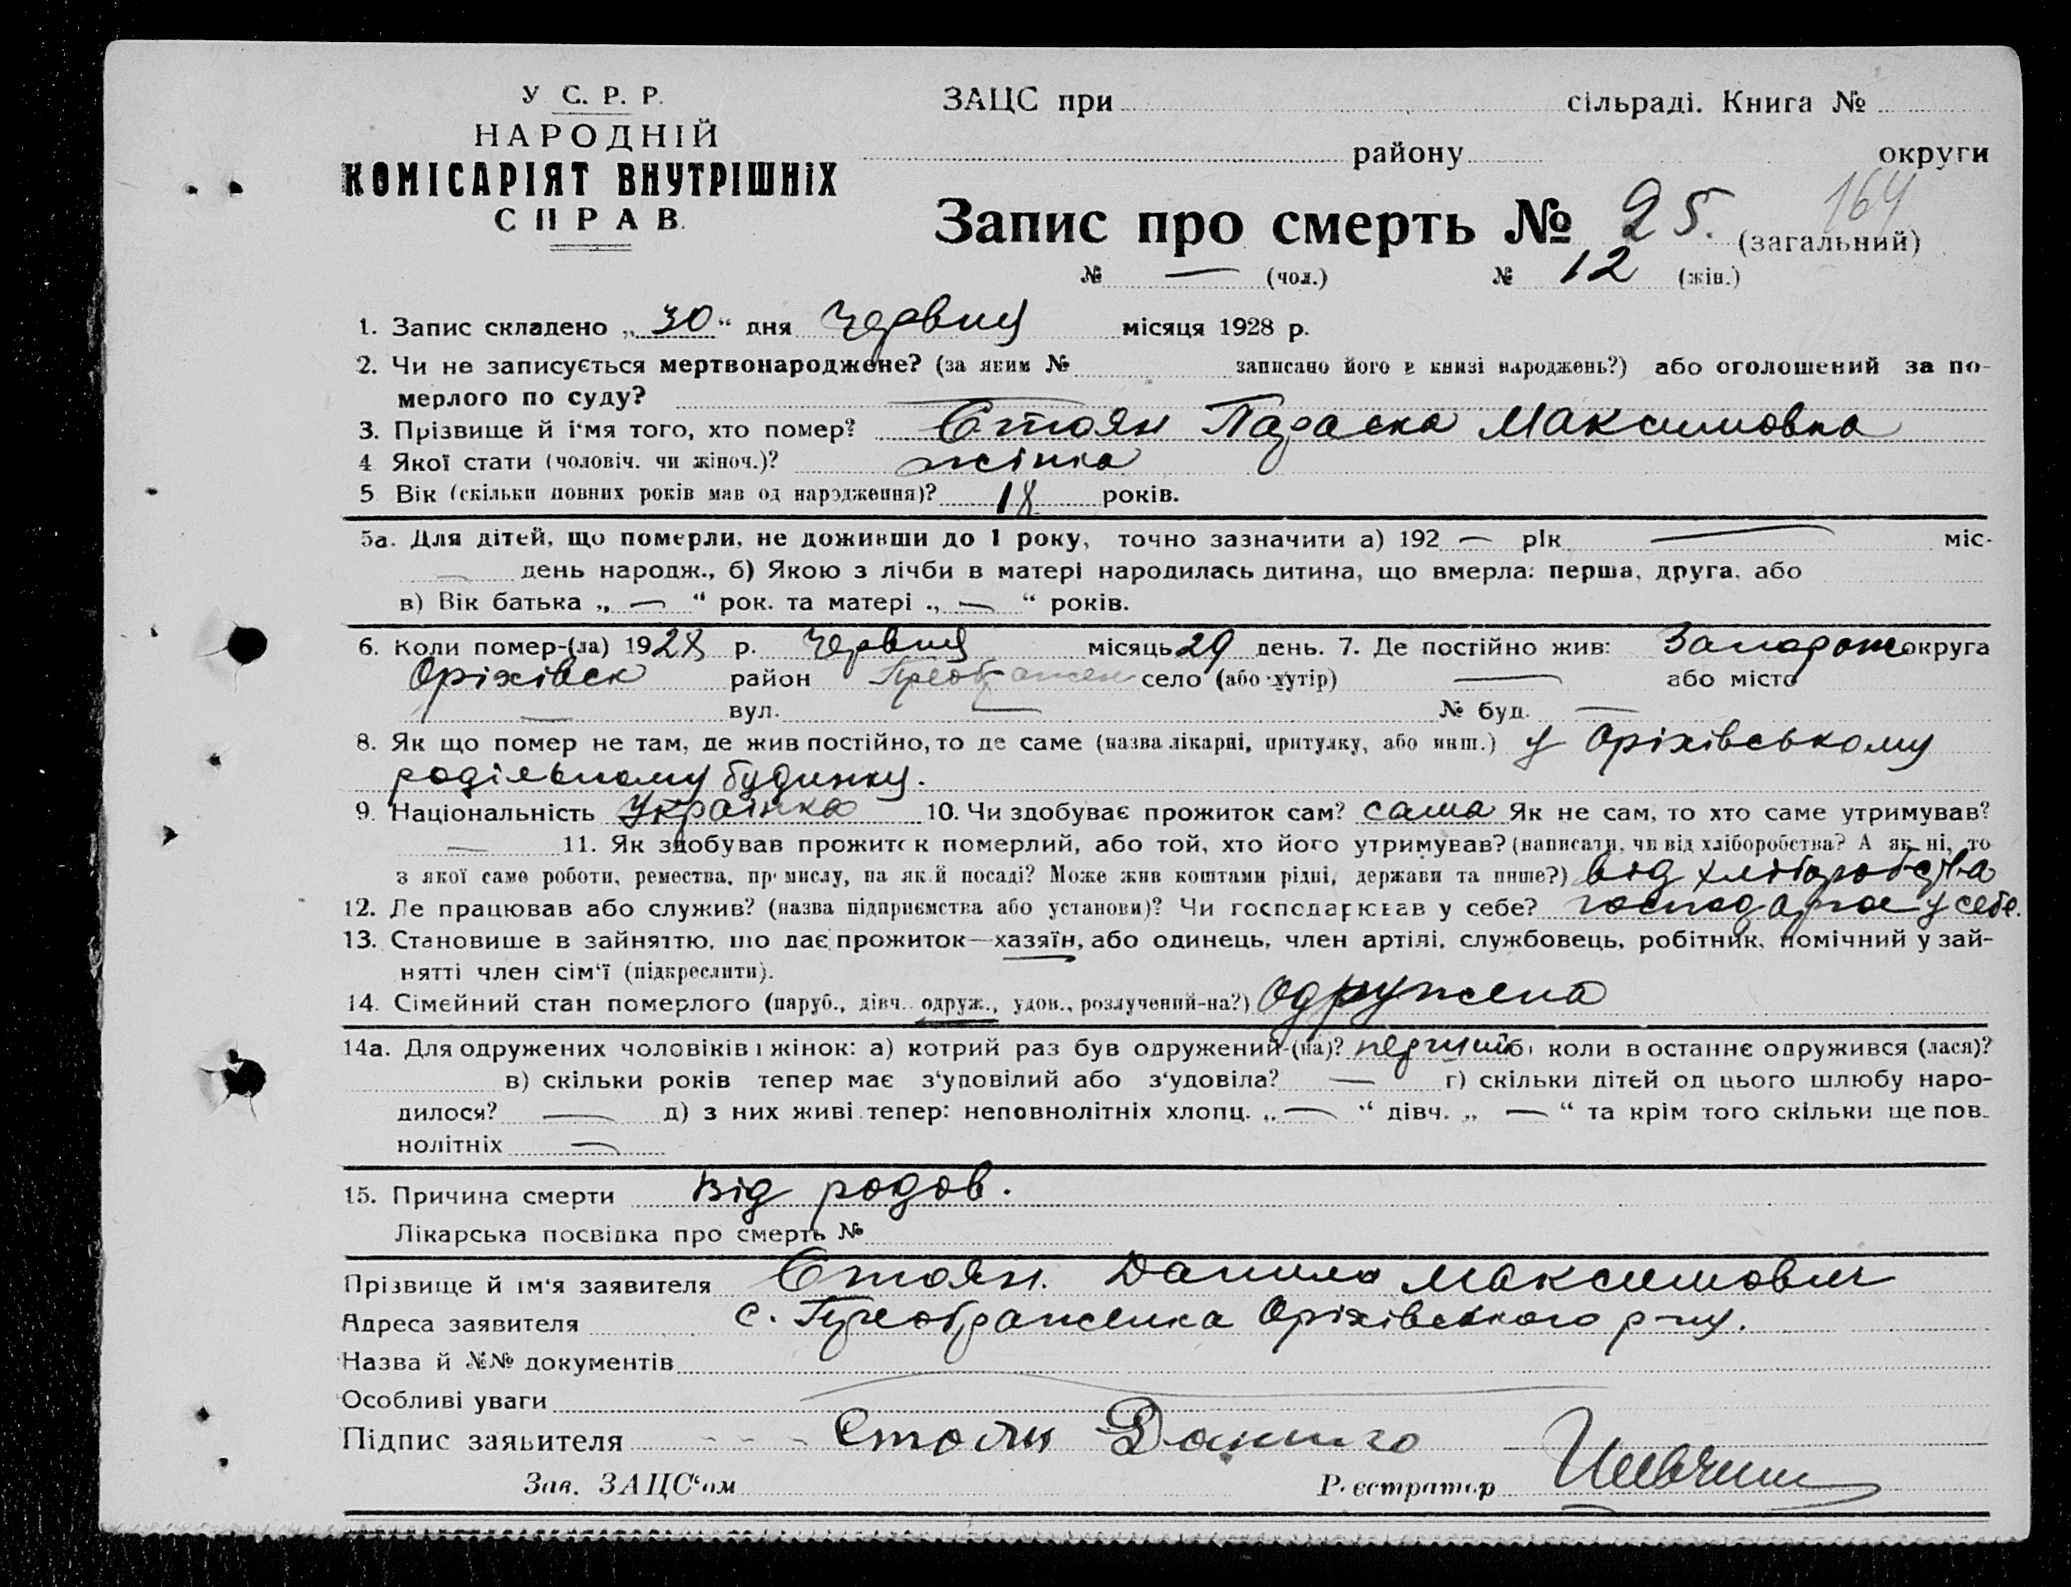 У С. Р. Р.
НАРОДНІЙ
КОМІСАРІЯТ ВНУТРІШНІХ
СПРАВ.
ЗАЦС при сільраді. Книга №
району округи
164
Запис про смерть № 25. (загальний)
№ — (чол.) № 12 (жін.)
1. Запис складено „30“ дня червня місяця 1928 р.
2. Чи не записується мертвонароджене? (за яким № записано його в книзі народжень?) або оголошений за по-
мерлого по суду? —
3. Прізвище й і'мя того, хто помер? Стоян Параска Максимовна
4 Якої стати (чоловіч. чи жіноч.)? жінка
5 Вік (скільки повних років мав од народження)? 18 років.
5а. Для дітей, що померли, не доживши до 1 року, точно зазначити а) 192 — рік — міс-
— день народж., б) Якою з лічби в матері народилась дитина, що вмерла: перша, друга, або
в) Вік батька „ — “ рок. та матері „ — “ років.
6. Коли помер-(ла) 1928 р. червня місяць 29 день. 7. Де постійно жив: Запорож округа
Оріхівск район Преображен село (або хутір) — або місто
— вул. — № буд. —
8. Як що помер не там, де жив постійно, то де саме (назва лікарні, притулку, або инш.) у Оріхівському
родільному будинку.
9. Національність Українка 10. Чи здобував прожиток сам? сама Як не сам, то хто саме утримував?
— 11. Як здобував прожиток померлий, або той, хто його утримував? (написати, чи від хліборобства? А як ні, то
з якої саме роботи, ремества, промислу, на якій посаді? Може жив коштами рідні, держави та инше?) від хліборобства
12. Де працював або служив? (назва підприємства або установи)? Чи господарював у себе? господарює у себе.
13. Становище в зайняттю, що дає прожиток—хазяїн, або одинець, член артілі, службовець, робітник, помічний у зай-
нятті член сім'ї (підкреслити).
14. Сімейний стан померлого (паруб., дівч. одруж., удов., розлучений-на?) Одружена
14а. Для одружених чоловіків і жінок: а) котрий раз був одружений-(на)? перший б) коли в останнє одружився (лася)?
в) скільки років тепер має з'уповілий або з'удовіла? — г) скільки дітей од цього шлюбу наро-
дилося? — д) з них живі тепер: неповнолітніх хлопц. „ — “ дівч. „ — “ та крім того скільки ще пов-
нолітніх —
15. Причина смерти від родов.
Лікарська посвідка про смерть №
Прізвище й ім'я заявителя Стоян. Данило Максимович
Адреса заявителя с. Преображенка Оріхівського р-ну.
Назва й №№ документів
Особливі уваги
Підпис заявителя Стоян Данило
Зав. ЗАЦС'ом Реєстратор